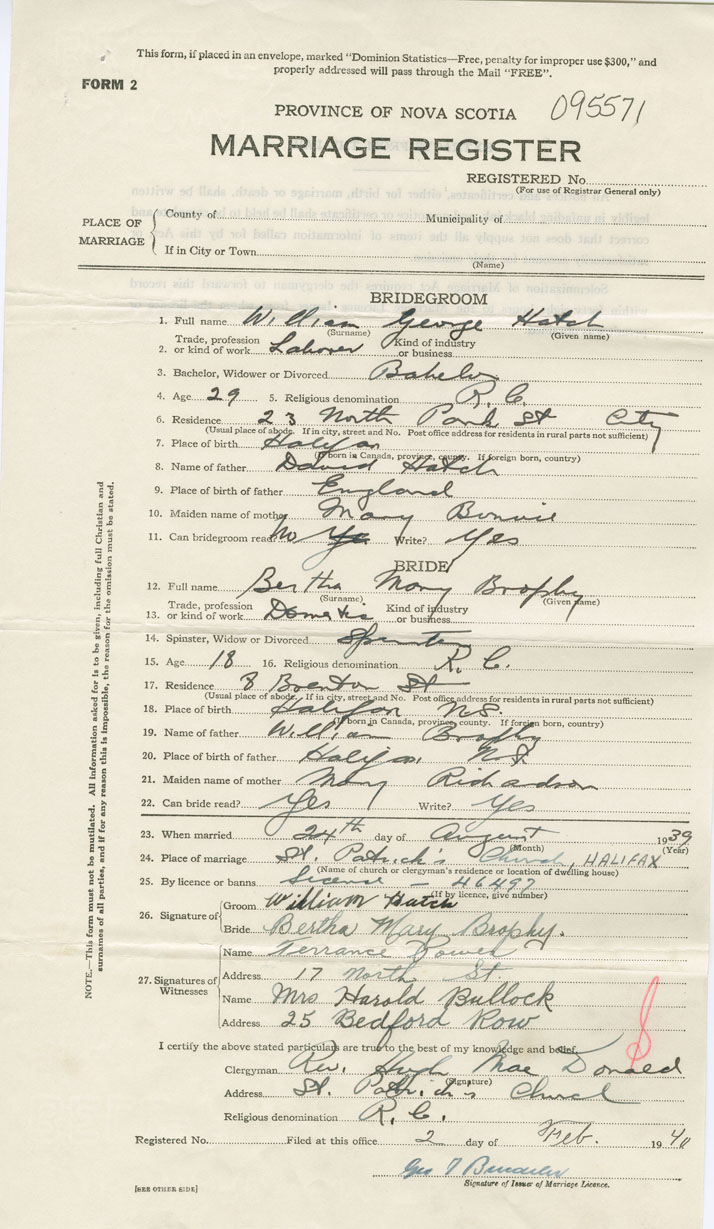 This form, if placed in an envelope, marked "Dominion Statistics—Free, penalty for improper use $300," and
properly addressed will pass through the Mail "FREE".
FORM 2
PROVINCE OF NOVA SCOTIA 095571
MARRIAGE REGISTER
REGISTERED No.
(For use of Registrar General only)
PLACE OF MARRIAGE
County of Municipality of
If in City or Town
(Name)
BRIDEGROOM
1. Full name William George Hatch
(Surname) (Given name)
2. Trade, profession or kind of work Laborer Kind of industry or business
3. Bachelor, Widower or Divorced Bahelor
4. Age 29 5. Religious denomination R. C.
6. Residence 23 North Park St City
(Usual place of abode. If in city, street and No. Post office address for residents in rural parts not sufficient)
7. Place of birth Halifax
(If born in Canada, province, county. If foreign born, country)
8. Name of father David Hatch
9. Place of birth of father England
10. Maiden name of mother Mary
11. Can bridegroom read? No Yes Write? Yes
BRIDE
12. Full name Bertha Mary Brophy
(Surname) (Given name)
13. Trade, profession or kind of work Domestic Kind of industry or business
14. Spinster, Widow or Divorced Spinster
15. Age 18 16. Religious denomination R. C.
17. Residence 8 Brenton St
(Usual place of abode. If in city, street and No. Post office address for residents in rural parts not sufficient)
18. Place of birth Halifax N.S.
(If born in Canada, province, county. If foreign born, country)
19. Name of father William Brophy
20. Place of birth of father Halifax, N.S.
21. Maiden name of mother Mary Richardson
22. Can bride read? Yes Write? Yes
23. When married 24th day of August 1939
(Month) (Year)
24. Place of marriage St. Patrick's Church, HALIFAX
(Name of church or clergyman's residence or location of dwelling house)
25. By licence or banns License - 46497
(If by licence, give number)
26. Signature of
Groom William Hatch
Bride Bertha Mary Brophy.
27. Signatures of Witnesses
Name Terrance Power
Address 17 North St
Name Mrs Harold Bullock
Address 25 Bedford Row
I certify the above stated particulars are true to the best of my knowledge and belief.
Clergyman Rev. Hugh Mac Donald
(Signature)
Address St. Patrick's Church
Religious denomination R. C.
Registered No. Filed at this office 2 day of Feb. 1940
Geo
Signature of Issuer of Marriage Licence.
[SEE OTHER SIDE]
NOTE.—This form must not be mutilated. All information asked for is to be given, including full Christian and
surnames of all parties, and if for any reason this is impossible, the reason for the omission must be stated.